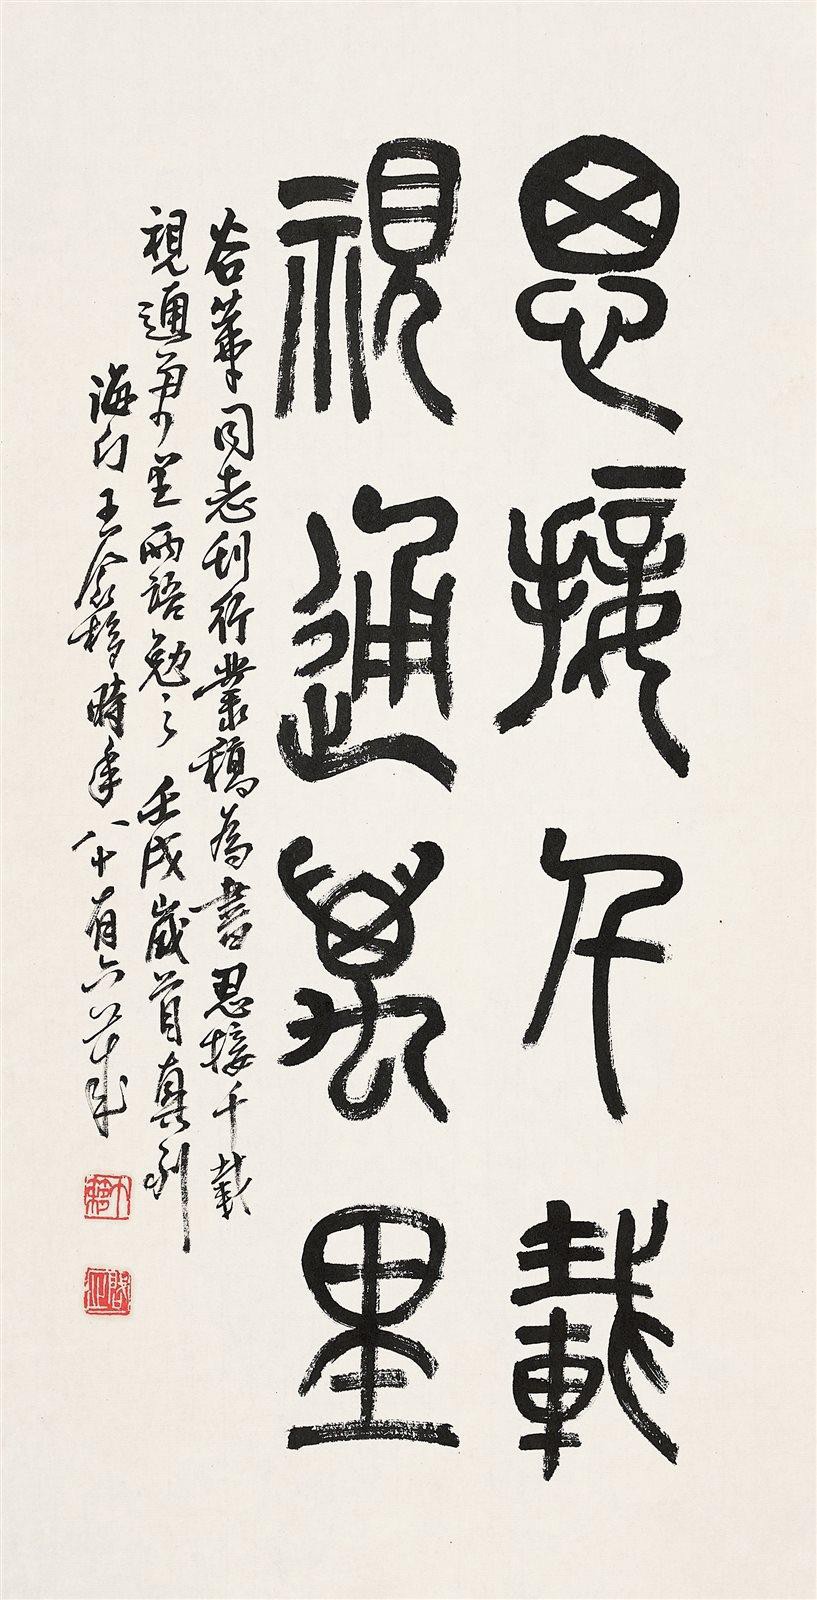 思接千載
視通萬里
谷葦同志刊行叢稿為書思接千載
視通萬里兩語勉之壬戌歲首真刖
海門王个簃時年八十有六